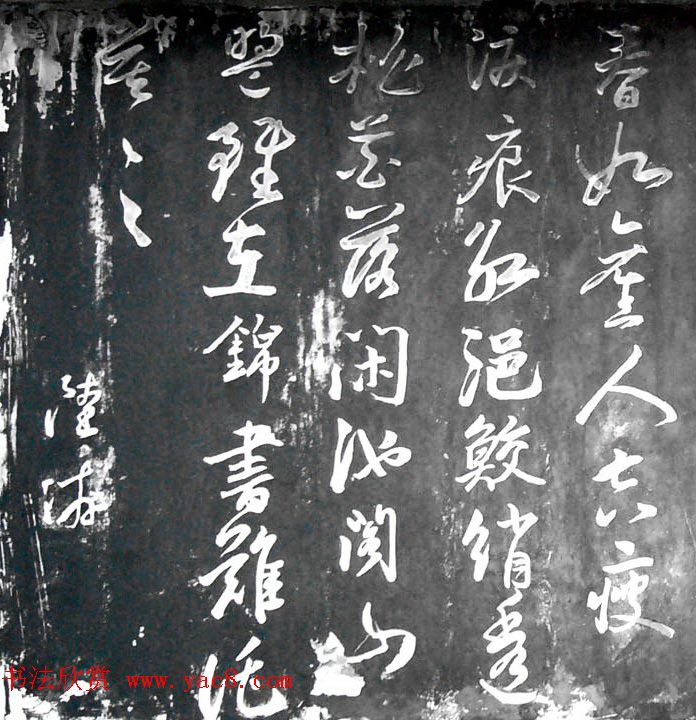 春如舊人空瘦
淚痕紅浥鮫綃透
桃花落閑池閣山
盟雖在錦書難託
莫々々
陸游
书法欣赏 www.yac8.com